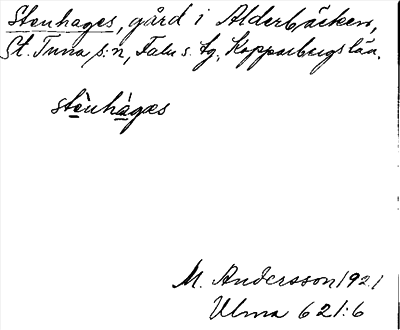 Stenhages, gård i Alderbäcken,
St. Tuna s:n, Falu s. tg, Kopparbergs län.
stènhàgæs
M. Andersson 1921
Ulma 621:6